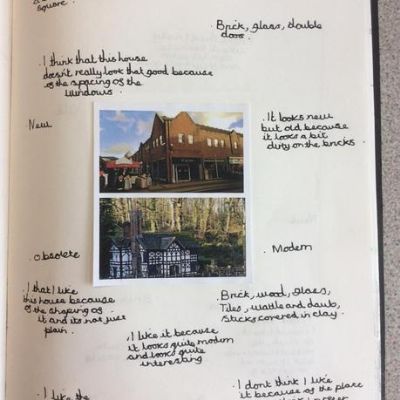 square.
Brick, glass, double
door.
. I think that this house
doesn't really look that good because
of the spacing of the
windows
New
. It looks new
but old because
it looks a bit
dirty on the bricks.
. Obsolete
. Modern
. I that I like
this house because
of the shaping of
it and its not just
plain.
Brick, wood, glass,
Tiles, wattle and daub,
sticks covered in clay.
. I like it because
it looks quite modern
and looks quite
interesting
. I like the
. I dont think I like
it because of the place